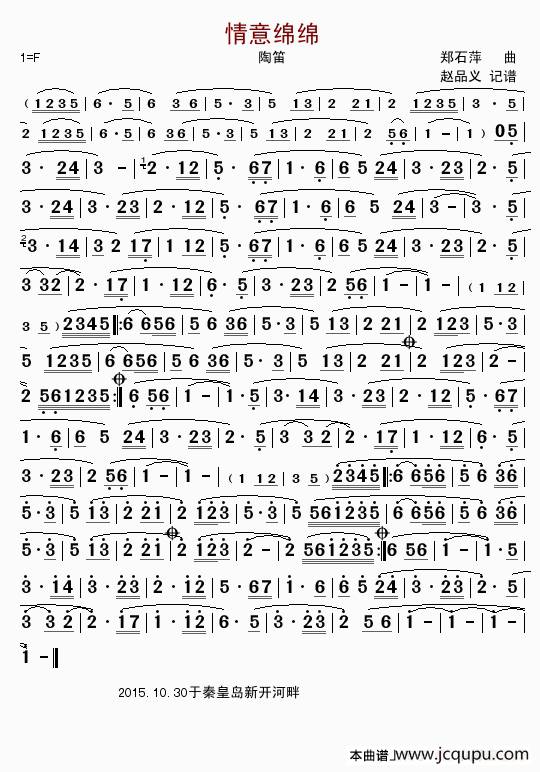 情意绵绵
1=F 陶笛 郑石萍 曲
赵品义 记谱
( 1235 | 6 · 5 | 6 3 6 | 5 · 3 | 5 13 | 2 21 | 2 1235 | 3 · 5 |
2 1235 | 6 · 5 | 6 36 | 5 · 3 | 5 13 | 2 21 | 2 56 | 1 - | 1 - ) 05 |
3 · 24 | 3 - | 1 2 · 12 | 5 · 67 | 1 · 6 | 6 5 24 | 3 · 23 | 2 · 5 |
3 · 24 | 3 · 23 | 2 · 12 | 5 · 67 | 1 · 6 | 6 5 24 | 3 - | 3 · 5 |
2 3 · 14 | 3 2 17 | 1 · 12 | 5 · 67 | 1 · 6 | 6 5 24 | 3 · 23 | 2 · 5 |
3 32 | 2 · 17 | 1 · 12 | 6 · 5 | 3 · 23 | 2 56 | 1 - | 1 - | ( 1 12 |
3 5 ) 2345 |: 6 656 | 5 6 36 | 5 · 3 | 5 13 | 2 21 | 2 123 | 3 · 5 |
5 1235 | 6 656 | 5 6 36 | 5 · 3 | 5 13 | 2 21 | 2 123 | 2 - |
2 561235 :| 6 56 | 1 - | 1 · 5 | 3 · 14 | 3 · 23 | 2 · 12 | 5 · 67 |
1 · 6 | 6 5 24 | 3 · 23 | 2 · 5 | 3 32 | 2 · 17 | 1 · 12 | 6 · 5 |
3 · 23 | 2 56 | 1 - | 1 - | ( 1 12 | 3 5 ) 2345 |: 6 656 | 5 6 36 |
5 · 3 | 5 13 | 2 21 | 2 123 | 3 · 5 | 5 561235 | 6 656 | 5 6 36 |
5 · 3 | 5 13 | 2 21 | 2 123 | 2 - | 2 561235 :| 6 56 | 1 - | 1 · 5 |
3 · 14 | 3 · 23 | 2 · 12 | 5 · 67 | 1 · 6 | 6 5 24 | 3 · 23 | 2 · 5 |
3 32 | 2 · 17 | 1 · 12 | 6 · 5 | 3 · 23 | 2 56 | 1 - | 1 - |
1 - ||
2015.10.30于秦皇岛新开河畔
本曲谱 www.jcqupu.com